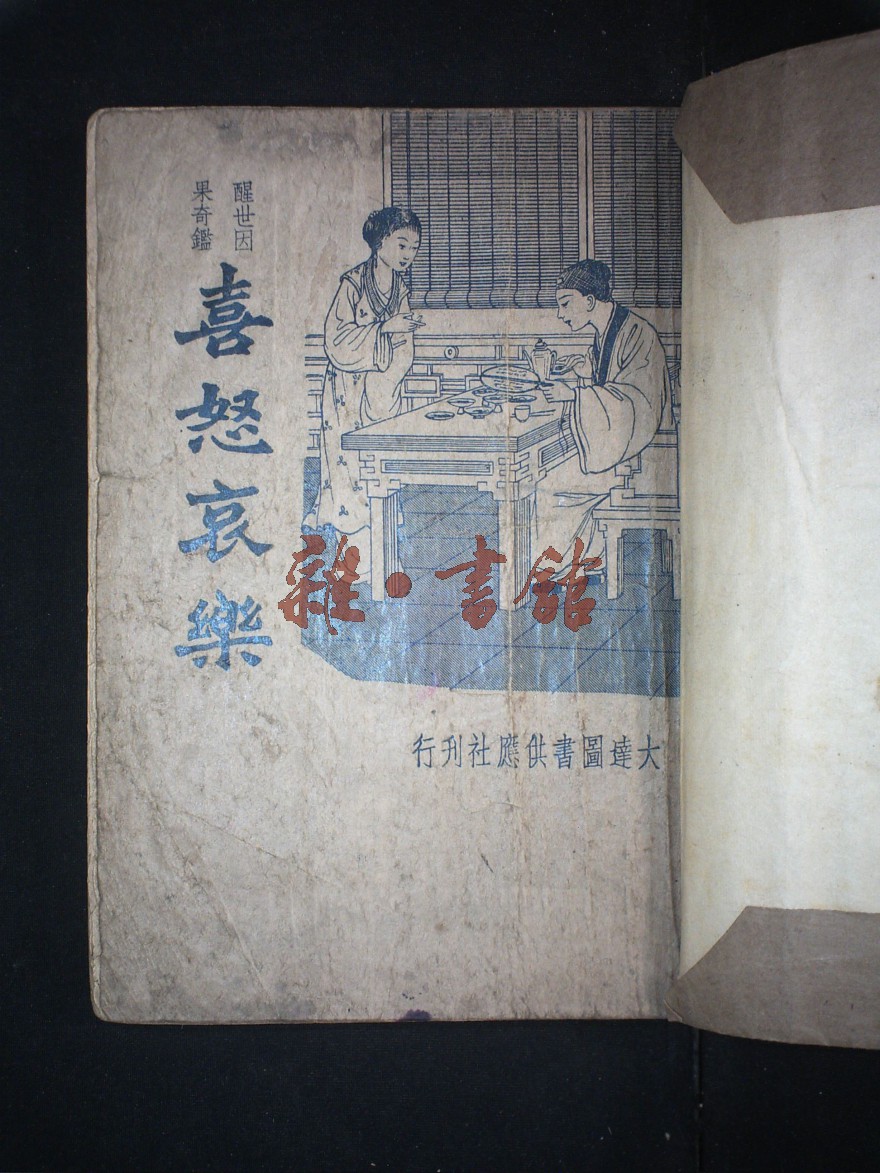 醒世因
果奇鑑
喜怒哀樂
雜·書館
大達圖書供應社刊行